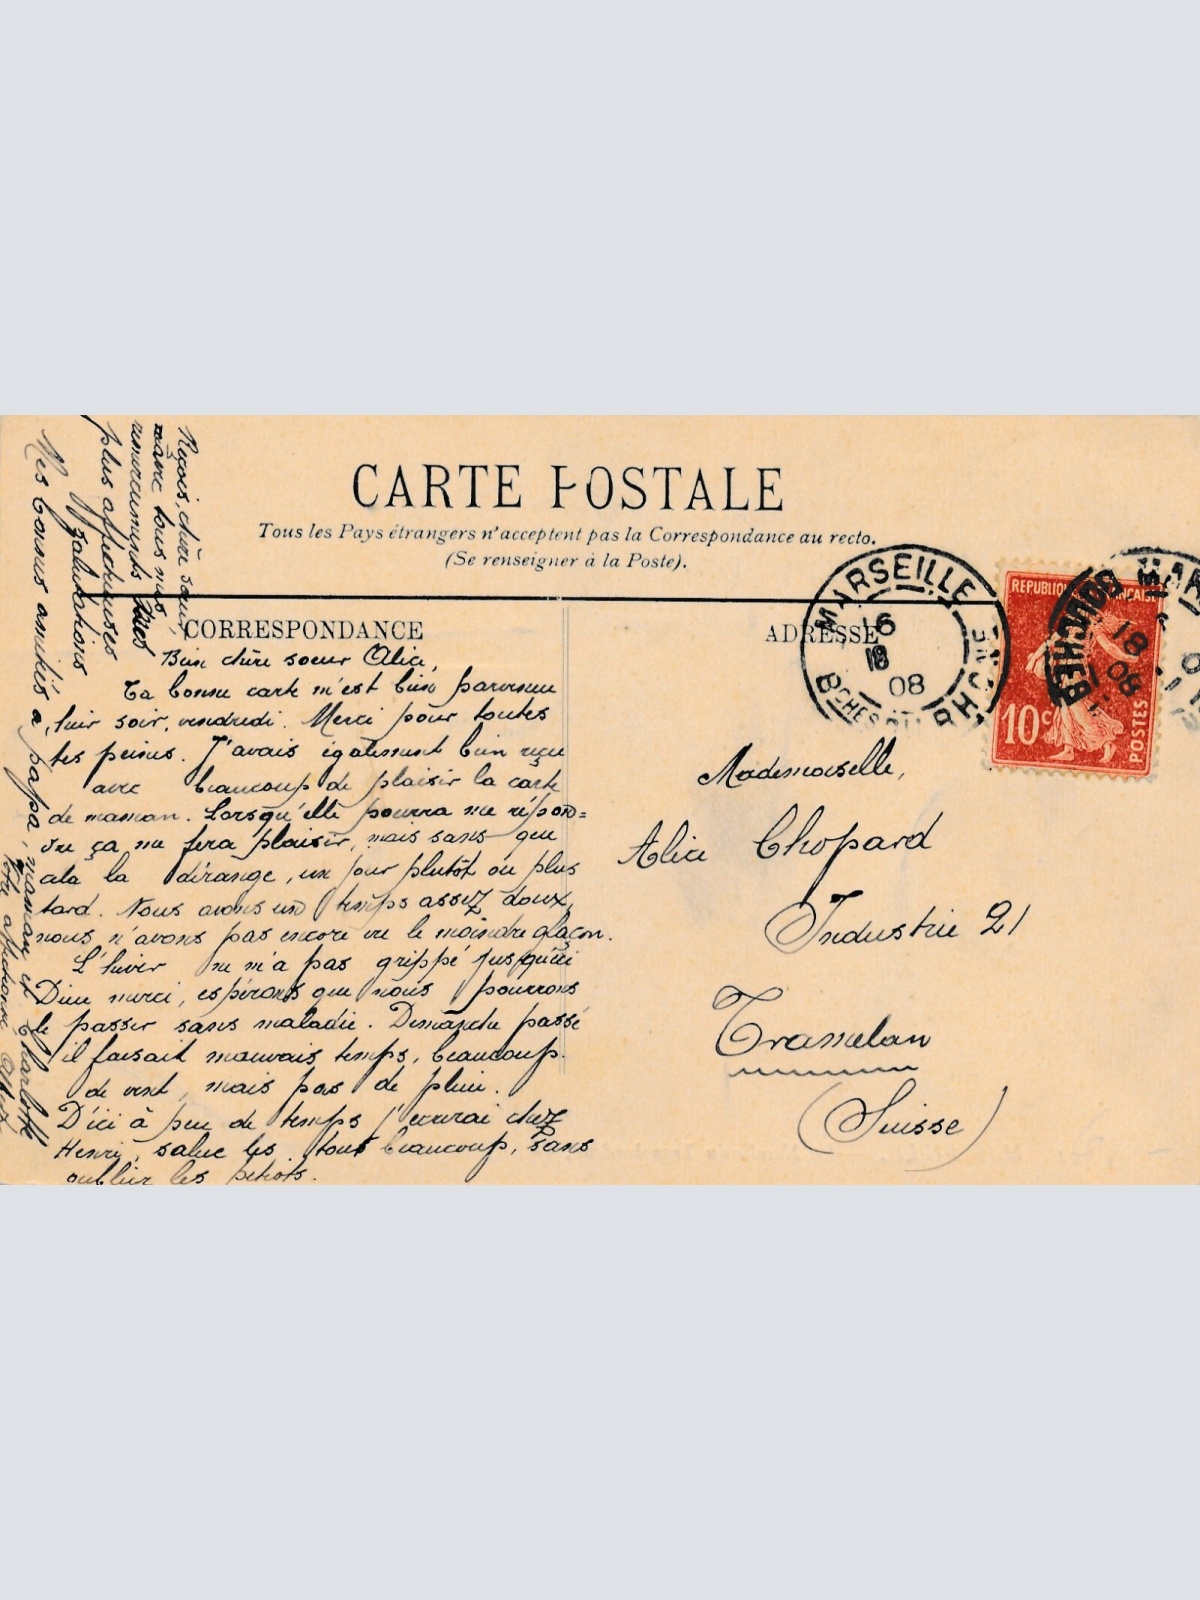 CARTE POSTALE
Tous les Pays étrangers n'acceptent pas la Correspondance au recto.
(Se renseigner à la Poste).
CORRESPONDANCE
ADRESSE
Bien chère soeur Alice,
Ta bonne carte m'est bien parvenue
hier soir, vendredi. Merci pour toutes
tes peines. J'avais également bien reçu
avec beaucoup de plaisir la carte
de maman. Lorsqu'elle pourra me répon=
dre ça me fera plaisir, mais sans que
cela la dérange, un jour plutôt ou plus
tard. Nous avons un temps assez doux,
nous n'avons pas encore vu le moindre glaçon.
L'hiver ne m'a pas grippé jusqu'ici
Dieu merci, espérons que nous pourrons
le passer sans maladie. Dimanche passé
il faisait mauvais temps, beaucoup
de vent, mais pas de pluie.
D'ici à peu de temps j'écrirai chez
Henri, salue les tous beaucoup, sans
oublier les petiots.
Reçois, chère soeur,
avec tous mes
remerciements mes
plus affectueuses
salutations
Mes bonnes amitiés à papa, maman et Charlotte
Mademoiselle,
Alice Chopard
Industrie 21
Tramelan
(Suisse)
MARSEILLE
BCHES DU RHONE
6
18
08
REPUBLIQUE FRANÇAISE
10c
POSTES
18
08